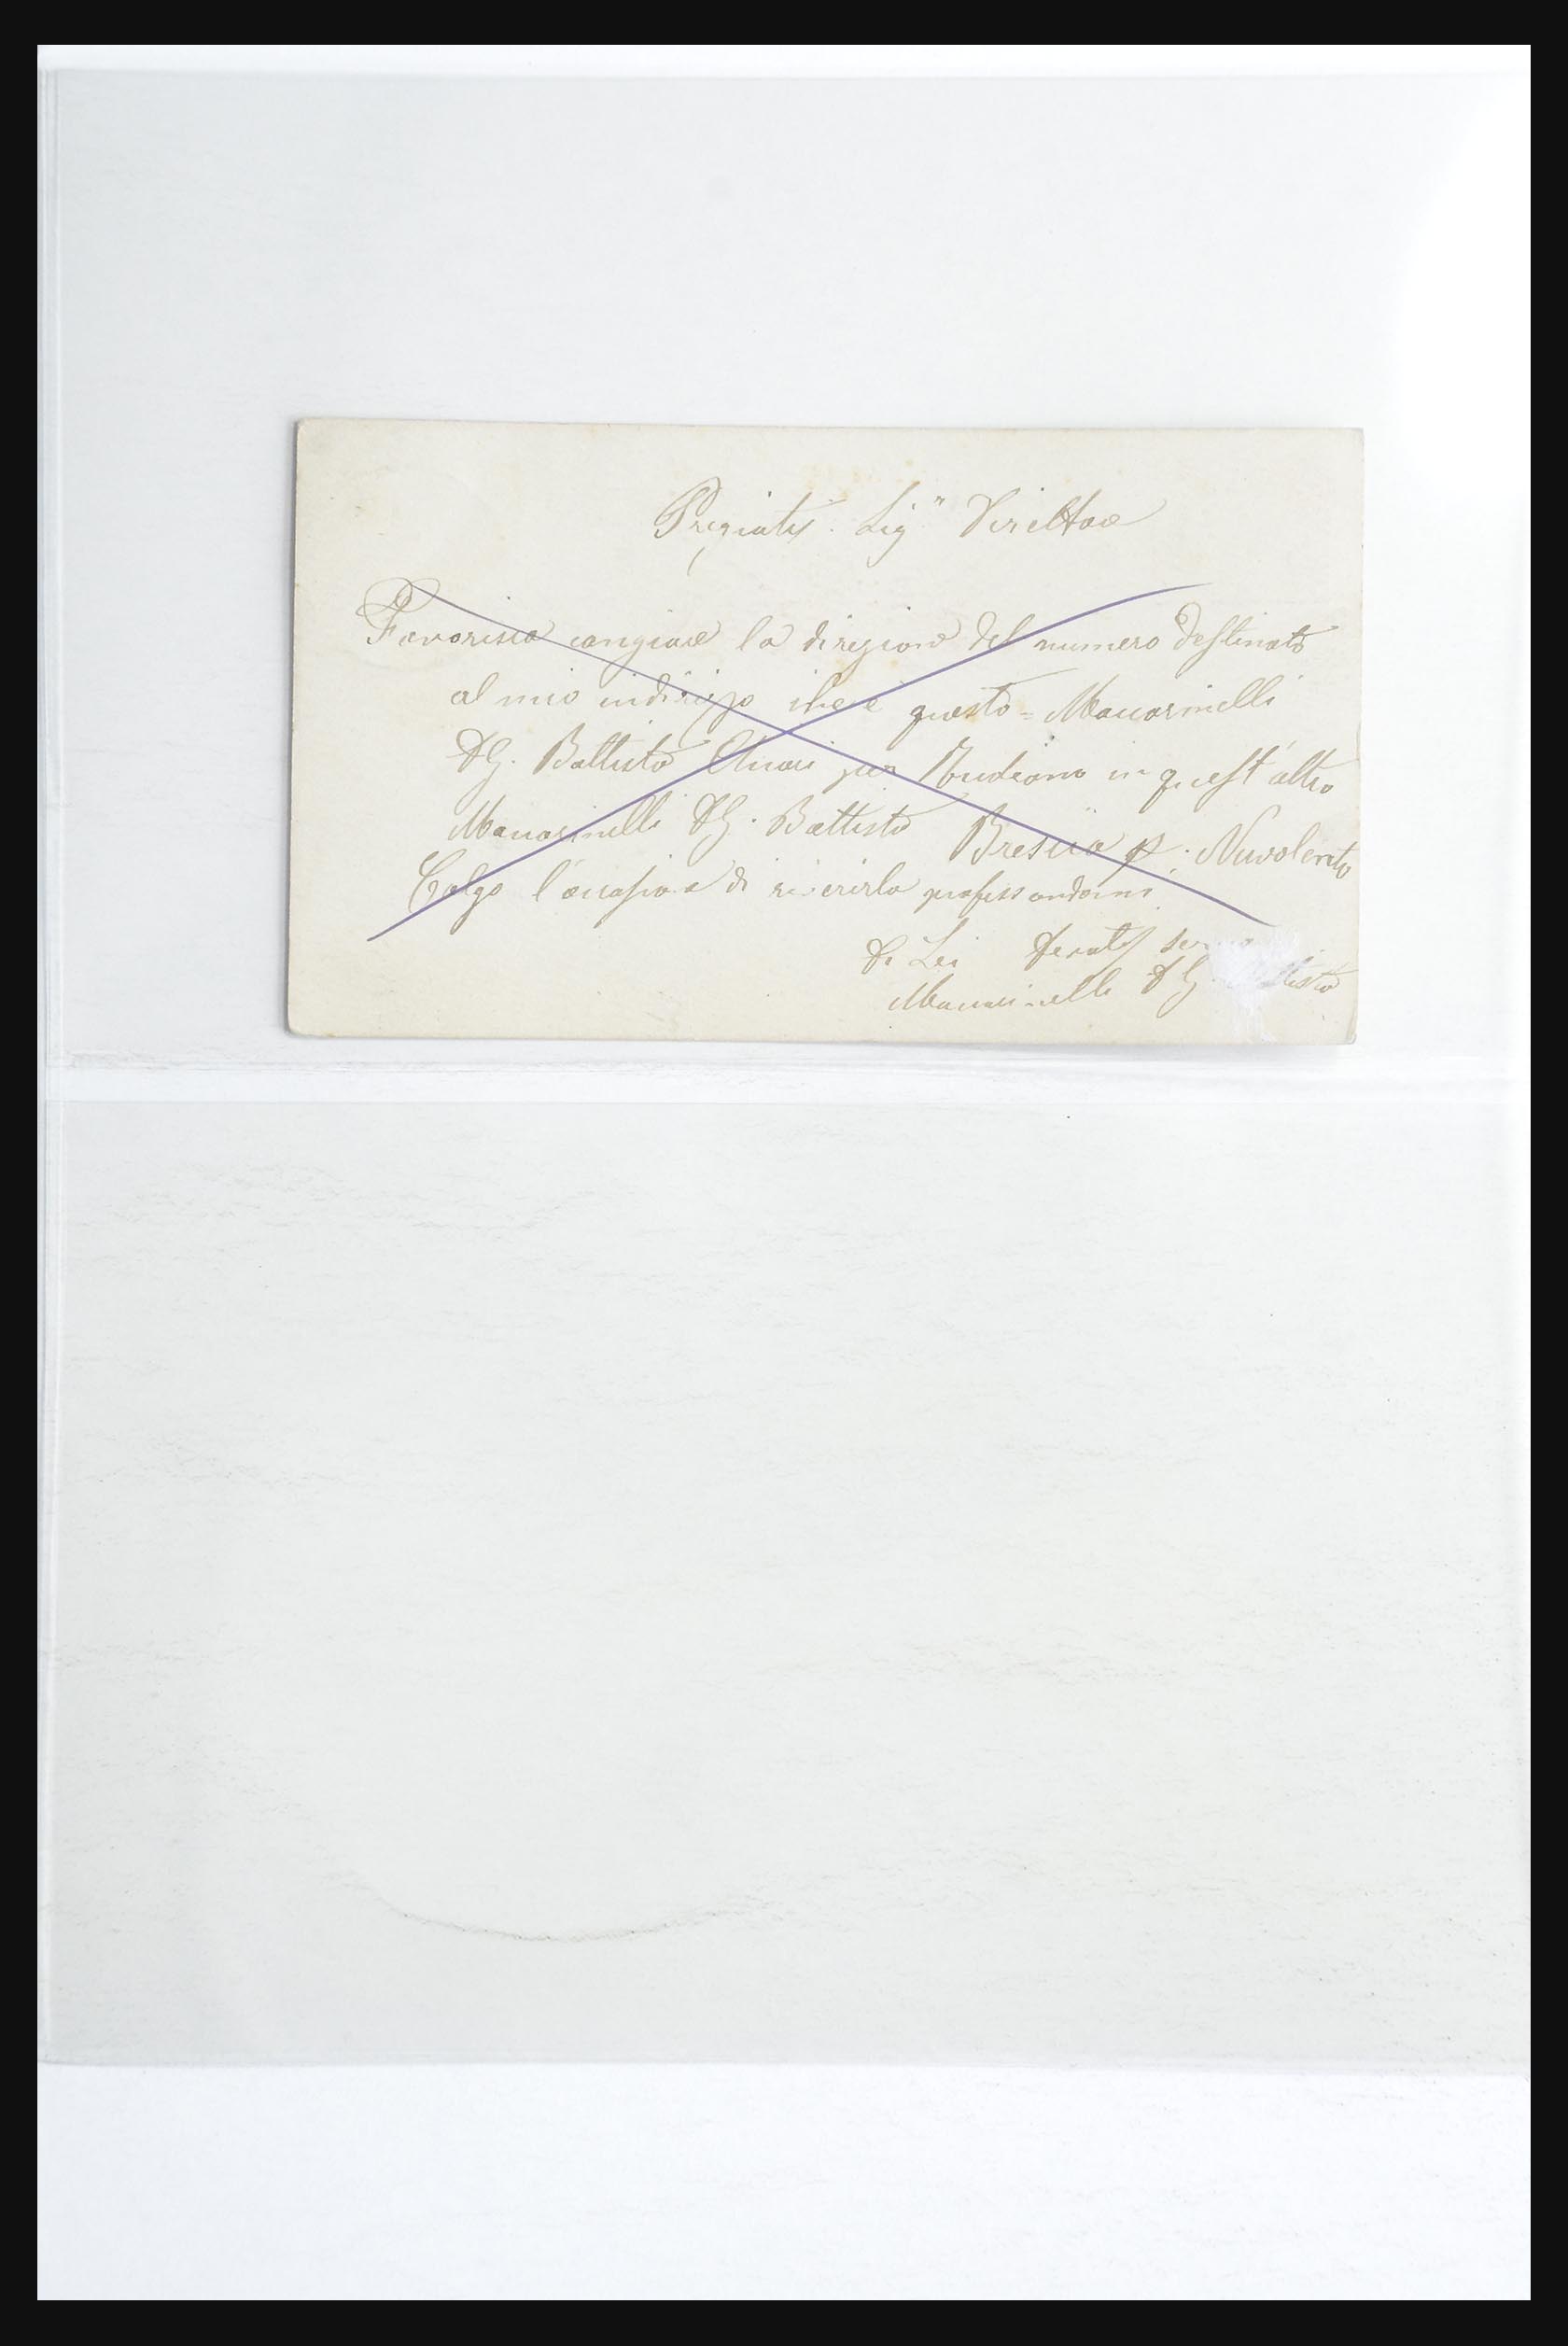 Pregiatis. Sigr Direttore
Favorisca cangiare la direzione del numero destinato
al mio indirizzo che è questo = Maccarinelli
D G. Battista Chiari per Rudiano in quest'altro
Maccarinelli D G. Battista Brescia p. Nuvolento
Colgo l'occasione di riverirla professandomi
Di Lei Devotis
Maccarinelli D G. Battista